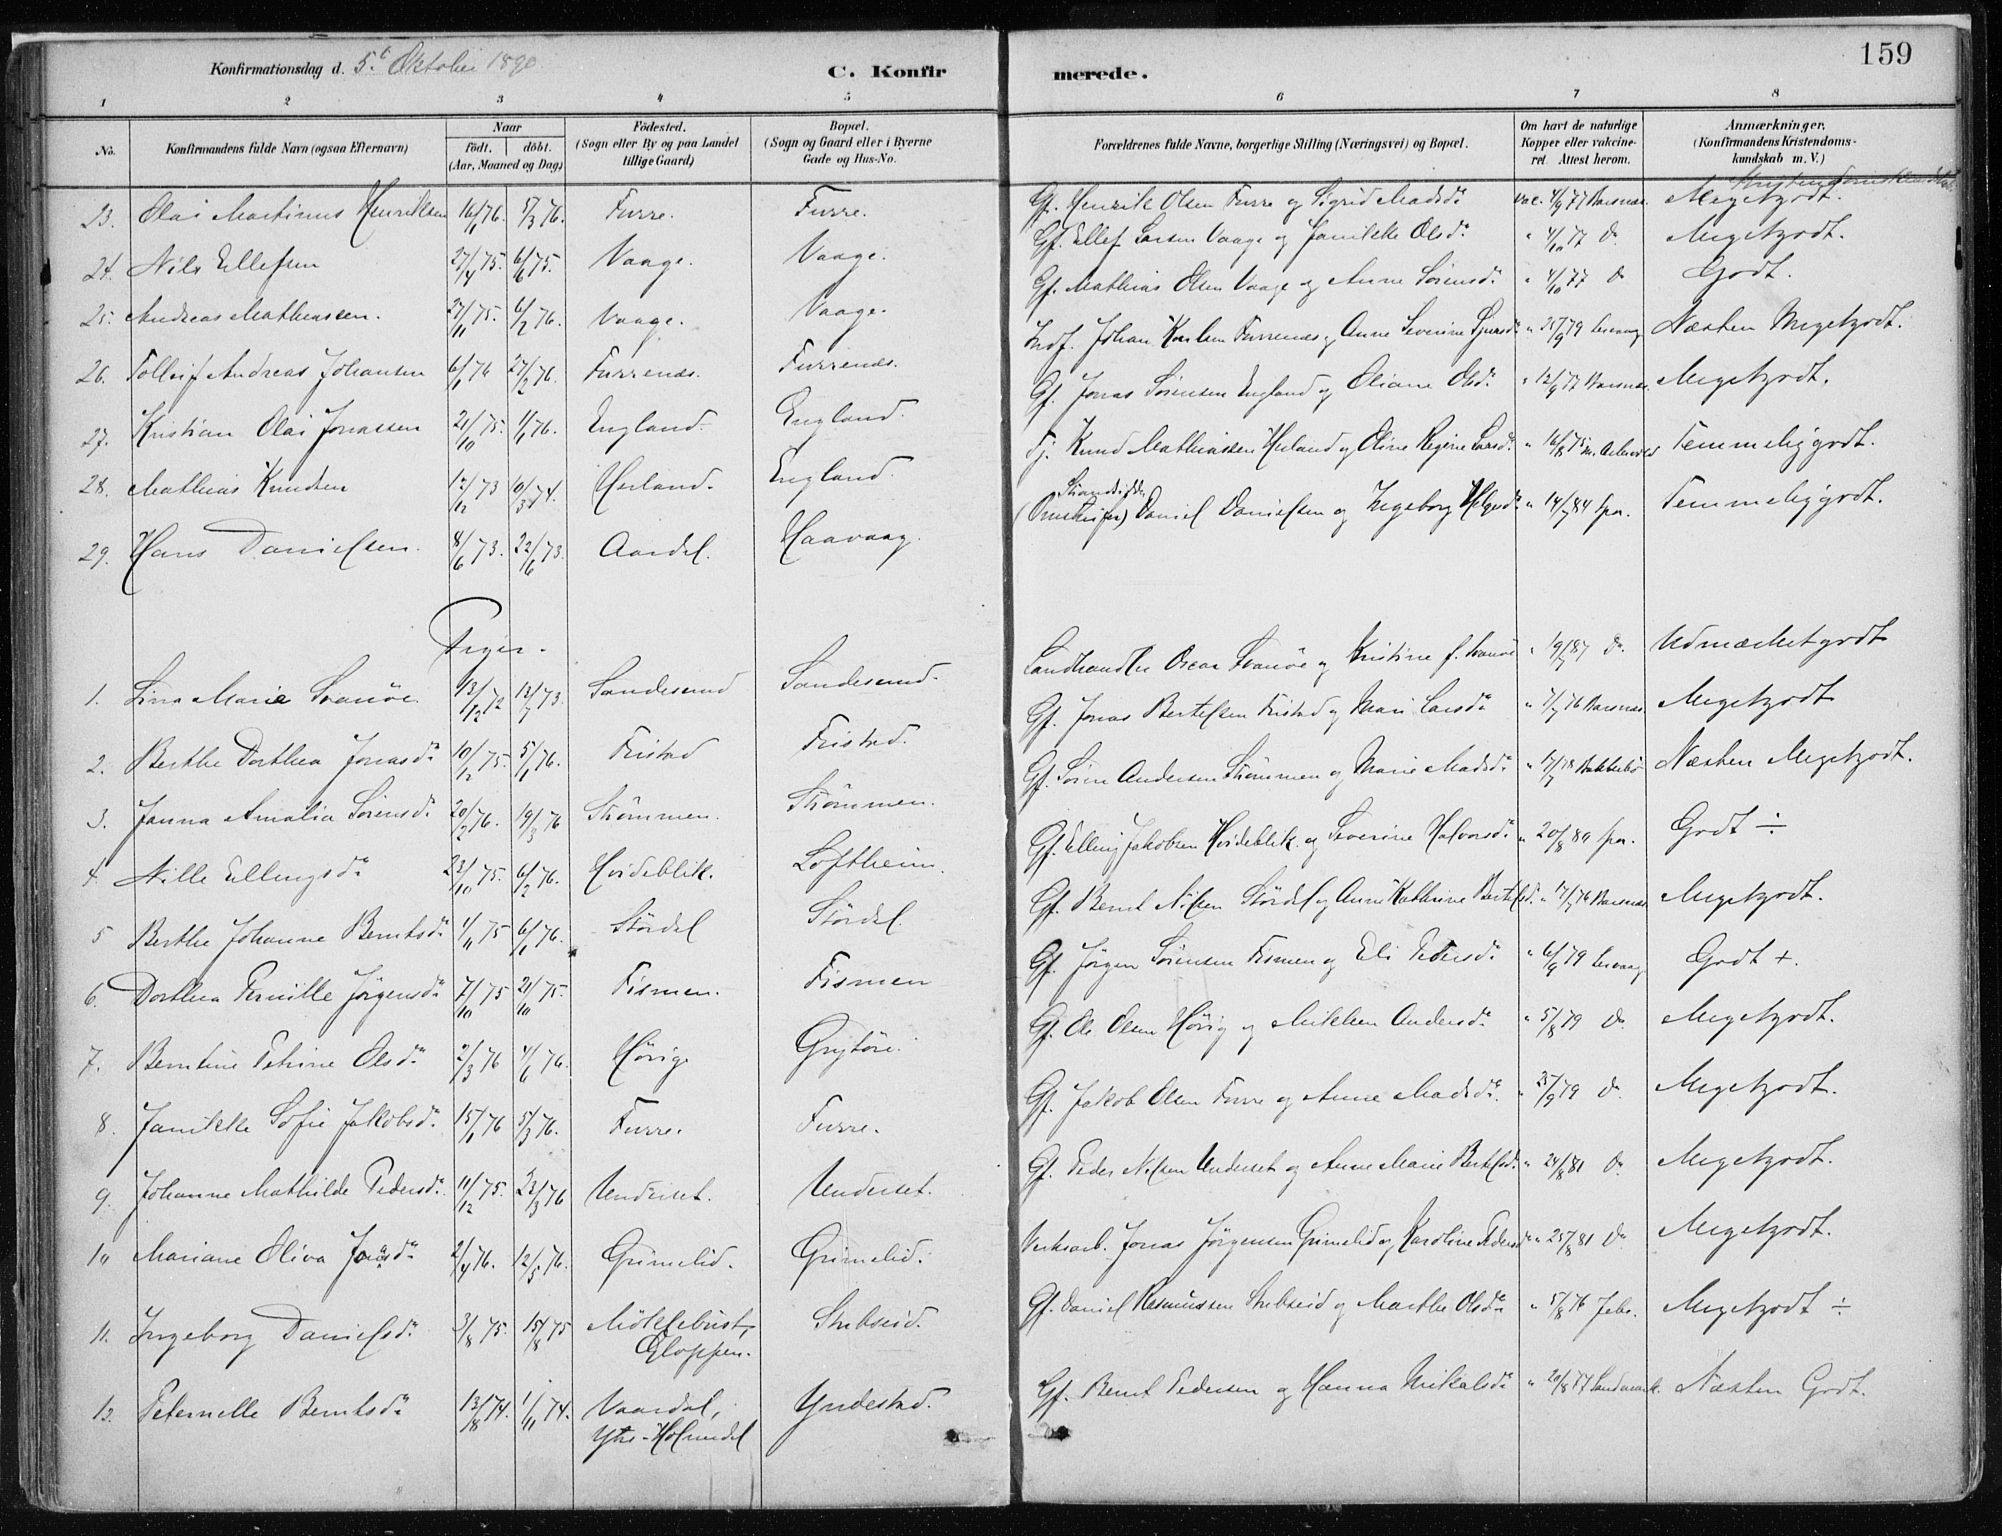 159
Konfirmationsdag d. 5t Oktober 1890
C. Konfirmerede.
1 2 3 4 5 6 7 8
No. Konfirmandens fulde Navn (ogsaa Efternavn) Naar födt. döbt. (Aar, Maaned og Dag) Födested. (Sogn eller By og paa Landet tillige Gaard) Bopæl. (Sogn og Gaard eller i Byerne Gade og Hus-No. Forældrenes fulde Navne, borgerlige Stilling (Næringsvei) og Bopæl. Om havt de naturlige Kopper eller vakcineret. Attest herom. Anmærkninger. (Konfirmandens Kristendomskundskab m. V.)
23. Olai Martinus Henriksen 16/1 76. 5/3 76. Furre. Furre. Gf. Henrik Olsen Furre og Sigrid Madsd. vac. 4/9 77 Meget godt.
24. Nils Ellefsen 27/4 75. 6/6 75. Vaage. Vaage. Gf. Ellef Larsen Vaage og Janikke Olsd. " 4/10 77 do Meget godt.
25. Andreas Mathiassen. 27/11 75. 6/2 76. Vaage. Vaage. Gf. Mathias Olsen Vaage og Anne Sørensd. " 4/10 77 do Godt.
26. Tolleif Andreas Johansen 6/1 76 27/2 76. Furrenes. Furrenes. Indf. Johan Karlsen Furrenes og Anne Severine " 25/9 79 Næsten Meget godt.
27. Kristian Olai Jonassen 21/10 75. 1/1 76. England. England. Gf. Jonas Sørensen England og Oliane Olsd. " 12/9 77 Meget godt.
28. Mathias Knudsen 12/12 73 10/3 74. Herland. England. Tj. Knud Mathiassen Herland og Oline Regine Larsd. " 16/8 75 Temmelig godt.
29. Hans Danielsen. 8/6 73. 22/6 73. Aardal. Haavaag. Strandsidder Daniel Danielsen og Ingeborg Helgesd. " 14/7 84 Temmelig godt.
Piger.
1. Lina Marie Svanöe 13/12 72 13/7 73. Sandesund Sandesund. Landhandler Oscar Svanöe og Kristine f. Svanöe " 19/7 87 do. Udmærket godt
2. Berthe Dorthea Jonasd. 10/12 75. 5/1 76. Tristad Tristad. Gf. Jonas Bertelsen Tristad og Mari Larsd. " 7/7 76 Meget godt
3. Janna Amalia Sörensd. 20/2 76. 19/3 76 Strömmen. Strömmen. Gf. Sören Andersen Strömmen og Marie Madsd. " 17/7 78 Næsten Meget godt.
4. Nille Ellingsd. 23/10 75. 6/2 76. Hvideblik. Loftheim. Gf. Elling Jakobsen Hvideblik og Severine Halvorsd. " 20/8 84 Godt ÷
5 Berthe Johanne Berntsd. 1/11 75 6/1 76. Stördal Stördal. Gf. Bernt Nilsen Stördal og Anne Kathrine Bertelsd. " 17/7 76 Meget godt.
6. Dorthea Pernille Jörgensd. 7/10 75 21/10 75. Tismen. Tismen Gf. Jörgen Sörensen Tismen og Eli Pedersd. " 6/9 79 Godt +.
7. Berntine Petrine Olsd. 2/3 76 4/6 76. Hörig Grytöre. Gf. Ole Olsen Hörig og Mikkeline Andersd. " 5/8 79 do. Meget godt.
8. Janikke Sofie Jakobsd. 15/1 76 5/3 76. Furre. Furre. Gf. Jakob Olsen Furre og Anne Madsd. " 25/9 79 do Meget godt.
9. Johanne Mathilde Pedersd. 11/12 75. 23/3 76 Underset. Underset. Gf. Peder Nilsen Underset og Anne Marie Bertelsd. " 24/8 81 do Meget godt.
10 Mariane Oliva Jonasd. 2/4 76. 12/5 76. Grimelid. Grimelid. Jonas Jörgensen Grimelid og Karoline Pedersd. " 25/8 81 do Meget godt.
11. Ingeborg Danielsd. 3/8 75. 15/8 75 Möklebust, Gloppen. Stubseid. Gf. Daniel Rasmussen Stubseid og Marthe Olsd. " 5/8 76 Meget godt ÷
12. Peternelle Berntsd. 13/8 74. 1/11 74. Vaardal, Ytre-Holmedal Yndestad. Gf. Bernt Pedersen og Hanna Mikalsd. " 20/8 77 Næsten Godt.